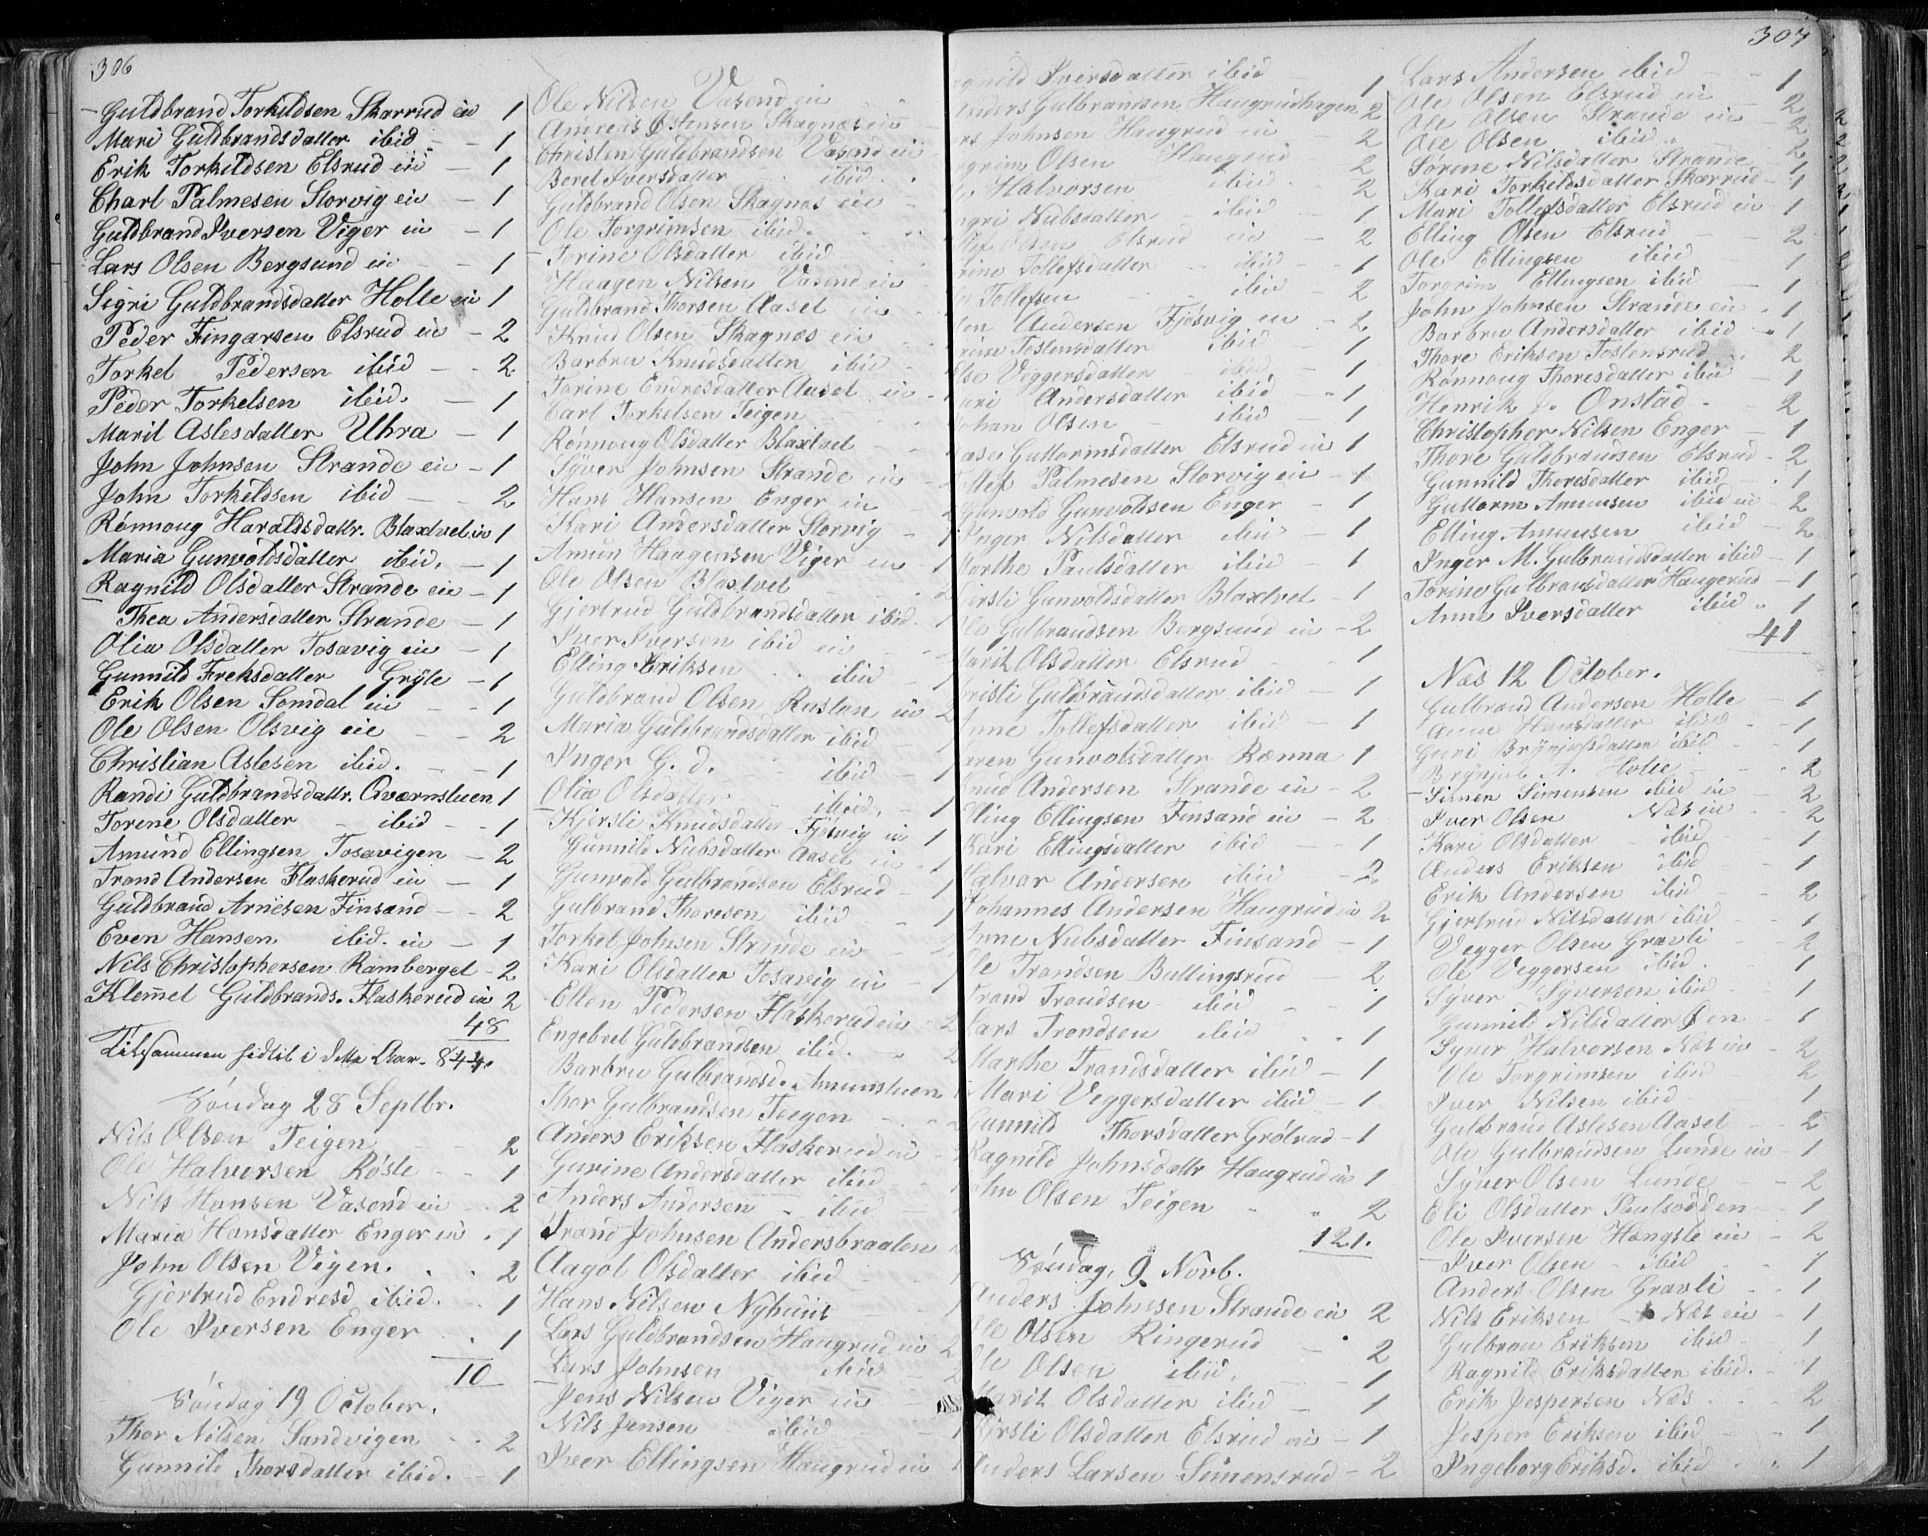 306
Guldbrand Torkildsen Skarrud eie 1
Mari Guldbrandsdatter ibid. - 1
Erik Torkildsen Elsrud eie - 1
Charl Palmesen Storvig eie - 1
Guldbrand Iversen Viger eie - 1
Lars Olsen Bergsund eie - 1
Sigri Guldbrandsdatter Holte eie 1
Peder Fingarsen Elsrud eie - 2
Torkel Pedersen ibid - 2
Peder Torkelsen ibid. - 1
Marit Aslesdatter Uhra - 1
John Johnsen Strande eie - 1
John Torkildsen ibid - 2
Rønnoug Haraldsdatr. Blaxtvet eie 1
Maria Gunvoldsdatter ibid. - 1
Ragnild Olsdatter Strande eie - 1
Thea Andersdatter Strande - 1
Olia Olsdatter Tosavig eie - 1
Gunnild Freksdatter Gryte - 1
Erik Olsen Somdal eie - 1
Ole Olsen Olsvig eie - 2
Christian Aslesen ibid. - 1
Randi Guldbrandsdattr. Qværnstuen 1
Torene Olsdatter - ibid - 1
Amund Ellingsen Tosavigen - 2
Trond Andersen Flaskerud eie - 1
Guldbrand Arnesen Finsand - 2
Even Hansen ibid. eie - 1
Nils Christophersen Ramberget - 2
Klemet Guldbrands. Flaskerud eie 2
48
Tilsammen hidtil i dette Aar - 844.
Søndag 28 Septbr.
Nils Olsen Teigen 2
Ole Halvorsen Røste - 1
Nils Hansen Vasend eie - 2
Maria Hansdatter Enger eie - 1
John Olsen Vigen. 2
Gjertrud Endresd ibid. 1
Ole Iversen Enger 1
10
Søndag 19 October.
Thor Nilsen Sandvigen - 2
Gunnild Thorsdatter ibid. - 1
Ole Nilsen Vasend eie
Andreas Østensen Skagnæs eie
Christen Guldbrandsen Vasend eie
Beret Iversdatter ibid.
Guldbrand Olsen Skagnæs eie
Ole Torgrimsen ibid.
Torine Olsdatter ibid
Haagen Nilsen Vasend eie
Guldbrand Thorsen Aaset eie
Knud Olsen Skagnæs eie
Barbru Knudsdatter ibid
Torine Endresdatter Aaset eie
Carl Torkelsen Teigen
Rønnoug Olsdatter Blaxtvet
Syver Johnsen Strande eie
Hans Hansen Enger eie
Kari Andersdatter Storvig
Amun Haagensen Viger eie
Ole Olsen Blaxtvet
Gjertrud Guldbrandsdatter ibid.
Iver Iversen ibid eie
Elling Eriksen ibid
Guldbrand Olsen Rusten eie
Maria Guldbrandsdatter ibid
Inger G. d. ibid
Olia Olsdatter ibid.
Kjersti Knudsdatter Fjösvig eie
Gunnild Nubsdatter Aaset eie
Gunvold Gulbrandsen Elsrud
Gulbrand Thoresen ibid
Torkel Johnsen Strande eie
Kari Olsdatter Tosavig eie
Ellen Pedersen Flaskerud eie
Engebret Guldbrandsen ibid.
Barbru Gulbrandsd. Amunstuen
Thor Gulbrandsen Teigen
Anders Eriksen Flaskerud eie
Gurine Andersdatter ibid
Anders Andersen ibid
Trond Johnsen Andersbraaten
Aagot Olsdatter ibid
Hans Nilsen Nyhuus
Lars Guldbrandsen Haugrud eie
Lars Johnsen ibid
Jens Nilsen Viger eie
Nils Jensen ibid
Iver Ellingsen Haugrud eie
307
Iversdatter ibid 1
Gulbrandsen Haugrudhagen 2
Johnsen Haugrud eie 2
Olsen Haugrud 2
Halvorsen ibid 2
Nubsdatter ibid 1
Olsen Elsrud eie 2
Tollefsdatter ibid 1
Tollefsen ibid 2
Andersen Fjösvig eie 2
Tostensdatter ibid 1
Veggersdatter ibid. 1
Andersdatter ibid 1
Johan Olsen ibid 1
Guttormsdatter Elsrud eie 1
Palmesen Storvig eie 1
Gunvold Gunvoldsen Enger 1
Inger Nilsdatter ibid 1
Marthe Paulsdatter ibid 1
Kjersti Gunvoldsdatter Blaxtvet - 1
Ole Gulbrandsen Bergsund eie - 2
Marit Olsdatter Elsrud - 1
Guldbrandsdatter ibid - 1
Anne Tollefsdatter ibid - 1
Karen Gunvolsdatter Rænna 1
Knud Andersen Strande eie - 2
Elling Ellingsen Finsand eie - 2
Kari Ellingsdatter ibid - 1
Halvor Andersen ibid - 2
Johannes Andersen Haugrud eie 2
Anne Nubsdatter Finsand - 1
Ole Trondsen Bullingsrud - 2
Trond Trondsen ibid - 1
Lars Trondsen ibid 1
Marthe Trondsdatter ibid - 1
Mari Veggersdatter ibid - 1
Gunnild Thorsdatter Grölrud - 1
Ragnild Johnsdattr Haugrud eie 1
John Olsen Teigen 2
121.
Søndag, 9 Novb.
Anders Johnsen Strande eie 2
Ole Olsen Ringerud - 2
Ole Olsen ibid. 1
Marit Olsdatter ibid - 1
Kjersti Olsdatter Elsrud eie - 1
Anders Larsen Simensrud - 2
Lars Andersen ibid 1
Ole Olsen Elsrud eie 2
Ole Olsen Strande eie 2
Ole Olsen ibid 2
Sørine Nilsdatter Strande 1
Kari Torkildsdatter Skarrud - 1
Mari Tollefsdatter Elsrud eie 1
Elling Olsen Elsrud - 2
Ole Ellingsen ibid 1
Torgrim Ellingsen ibid 1
John Johnsen Strande eie 1
Barbru Andersdatter ibid 1
Thore Eriksen Tostensrud 2
Rønnoug Thoresdatter ibid 1
Henrik J. Onstad 2
Christopher Nilsen Enger 1
Thore Guldbrandsen Elsrud - 2
Gunnild Thoresdatter ibid 1
Guttorm Amunsen ibid eie 2
Elling Amunsen ibid 2
Inger M. Gulbrandsdatter ibid - 1
Torine Gulbransdatter Haugerud - 1
Anne Iversdatter ibid 1
41
Næs 12 October.
Gulbrand Andersen Holte - 1
Anne Hansdatter ibid 1
Guri Brynjulfsdatter ibid 1
Brynjul A. Holte 2
Simen Simensen ibid eie 2
Iver Olsen Næs eie 2
Kari Olsdatter ibid 1
Anders Eriksen ibid 1
Erik Andersen ibid 2
Gjertrud Nilsdatter ibid 1
Vegger Olsen Gravli 2
Ole Veggersen ibid. 1
Syver Syversen ibid 1
Gunnild Nilsdatter Øen 1
Syver Halvorsen Næs eie 2
Ole Torgrimsen ibid 2
Iver Nilsen ibid 1
Gulbrand Aslesen Aaset 2
Ole Gulbrandsen Lunde eie - 1
Syver Olsen Lunde 2
Eli Olsdatter Paulsødden - 1
Ole Iversen Hængsle eie - 2
Iver Olsen ibid 1
Anders Olsen Gravli 1
Nils Eriksen Næs eie 1
Gulbran Eriksen ibid 1
Ragnild Eriksdatter ibid. 1
Erik Jespersen Næs 2
Jesper Eriksen ibid 1
Ingeborg Eriksd. ibid 1